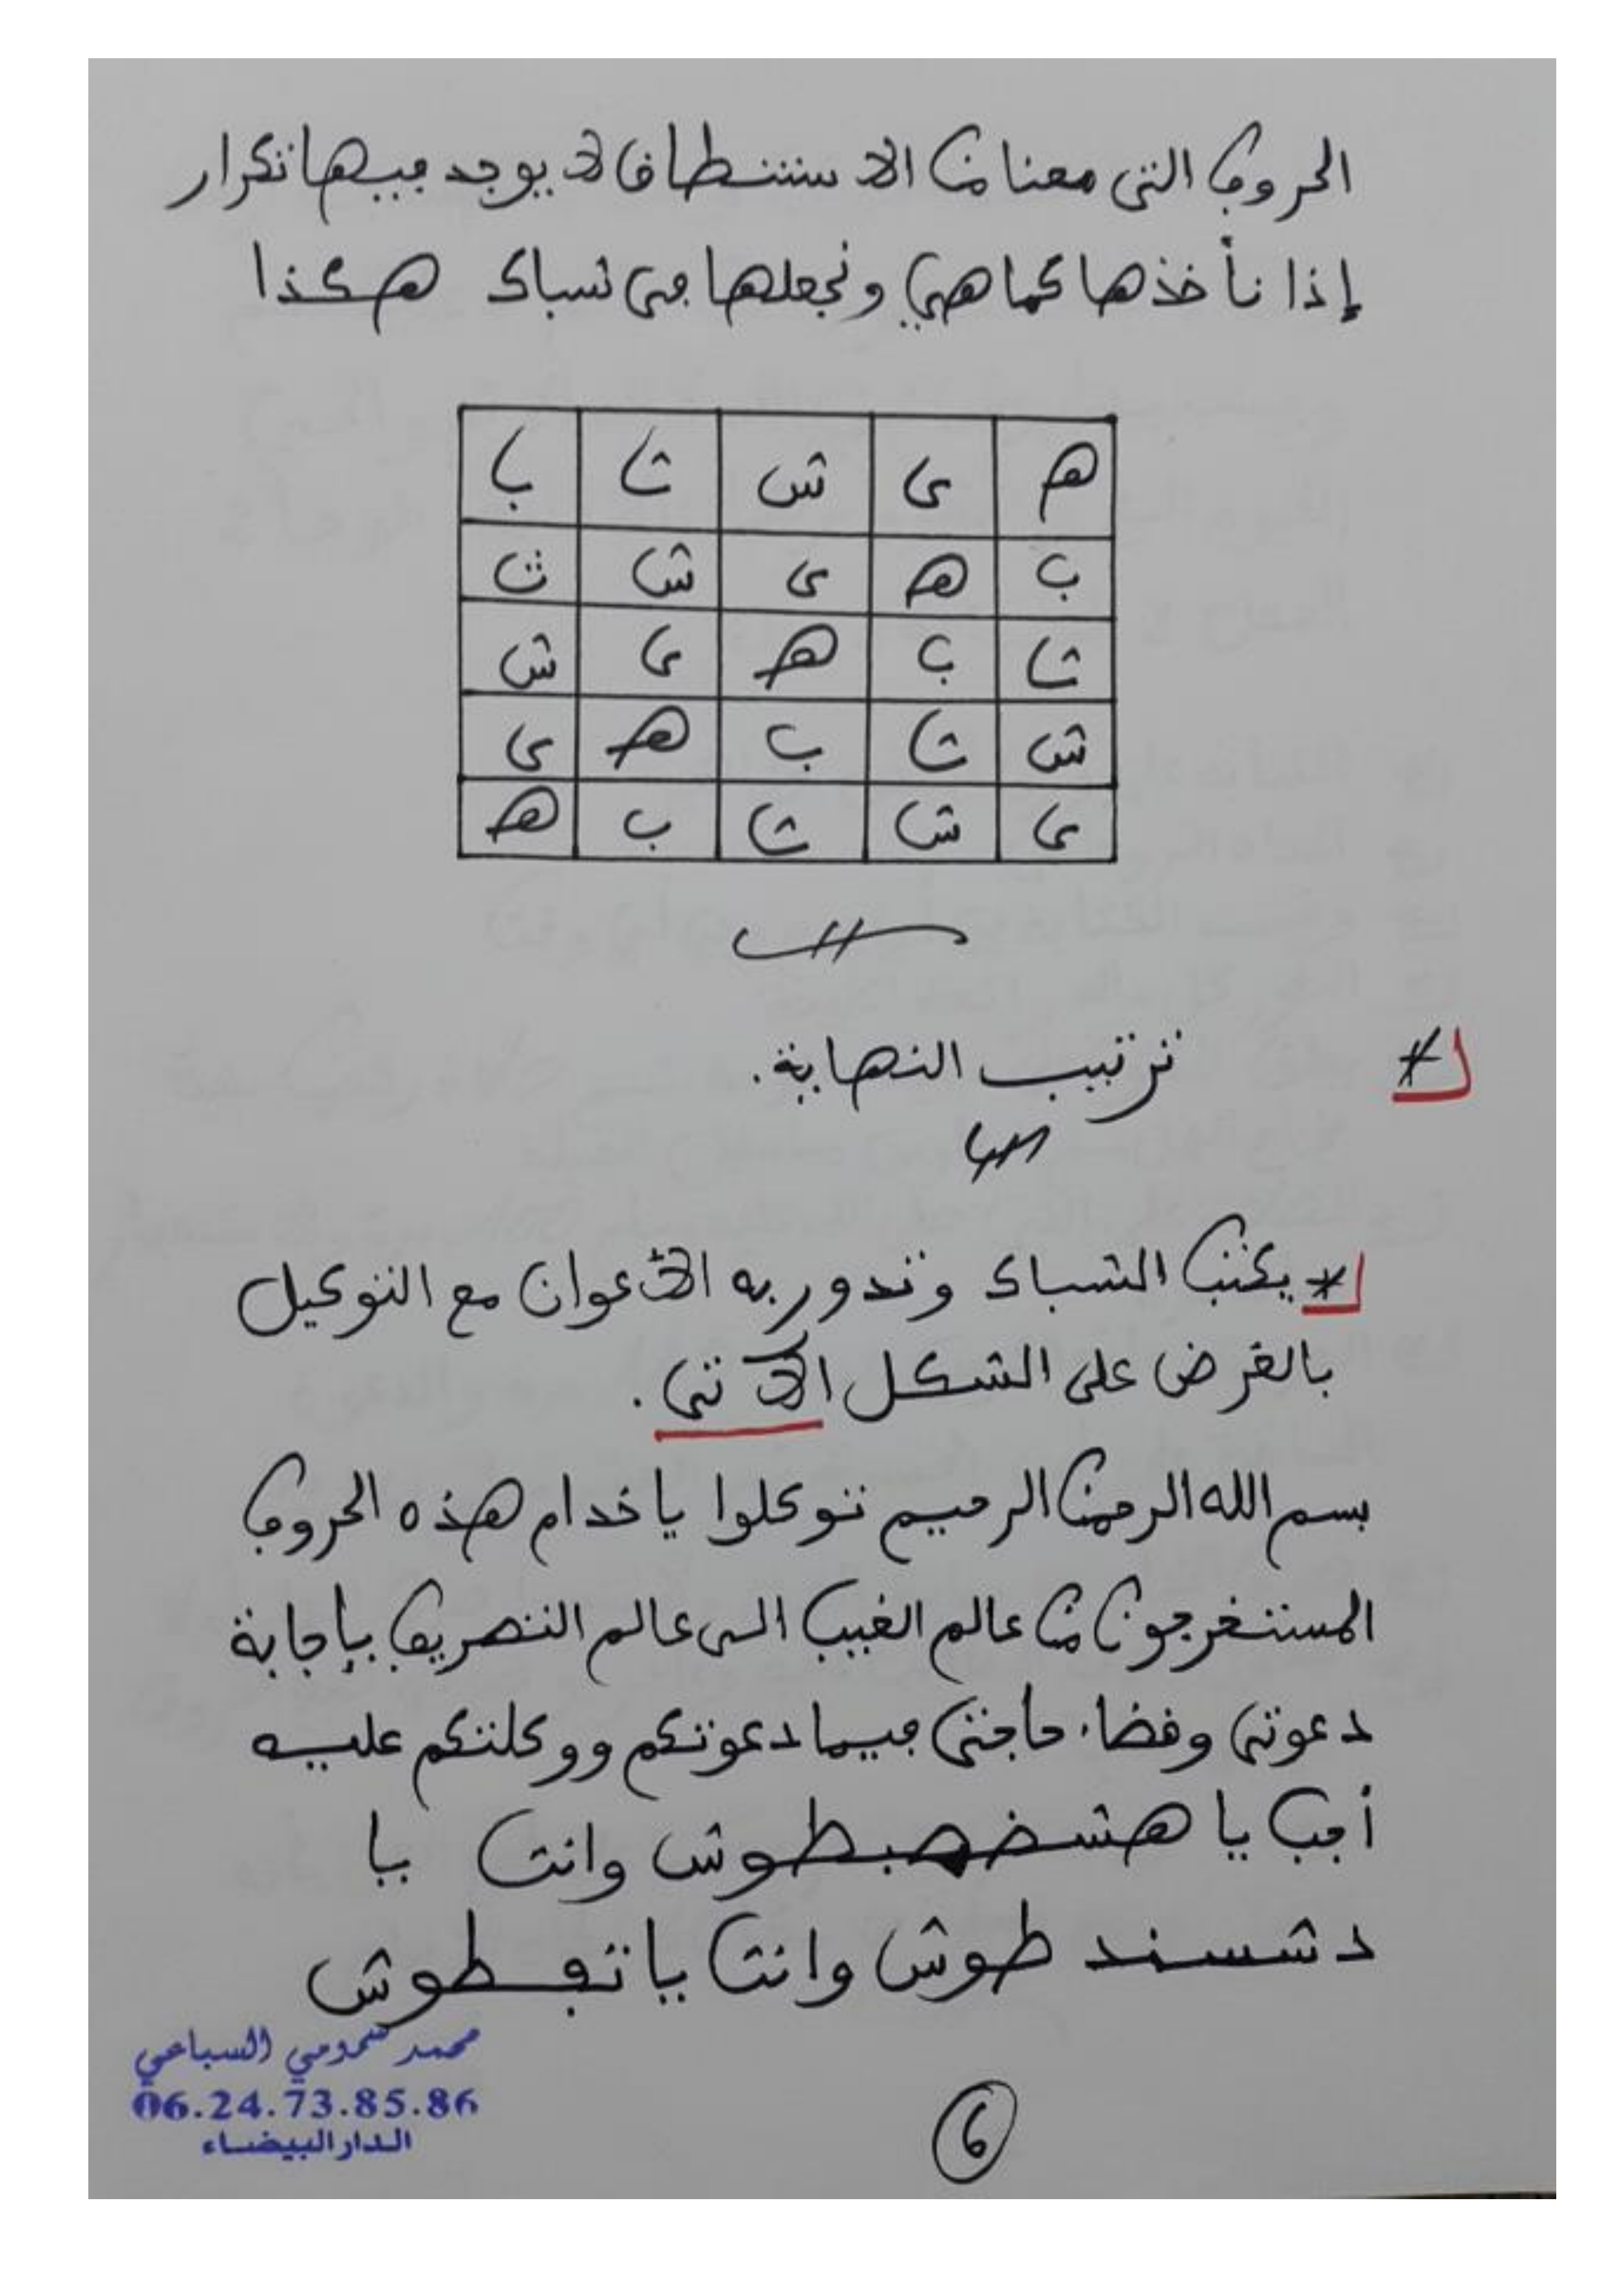 الحروف التي معنا من الاستنطاق لا يوجد فيها تكرار
إذا نأخذها كما هي ونجعلها في شباك هكذا
ه ى ش ت ب
ب ه ى ش ت
ت ب ه ى ش
ش ت ب ه ى
ى ش ت ب ه
ترتيب النهاية.
يكتب الشباك وتدور به الأعوان مع التوكيل
بالغرض على الشكل الآتي.
بسم الله الرحمن الرحيم توكلوا يا خدام هذه الحروف
المستخرجون من عالم الغيب الى عالم التصريف بإجابة
دعوتي وقضاء حاجتي فيما دعوتكم ووكلتكم عليه
أجب يا وانت يا
طوش وانت يا
محمد السباعي
06.24.73.85.86
الدار البيضاء
6